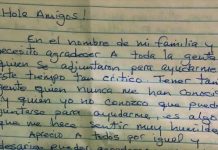 ¡Hola Amigos!
En el nombre de mi familia y
necesito agradecer A toda la gente
quien se adjuntaron para ayudarme
este tiempo tan critico Tener tan
gente quien nunca me han conoci
y quien yo no conozco que pued
juntarse para ayudarme, es algo
que me hace sentir muy humilde
Aprecio A todos por igual y